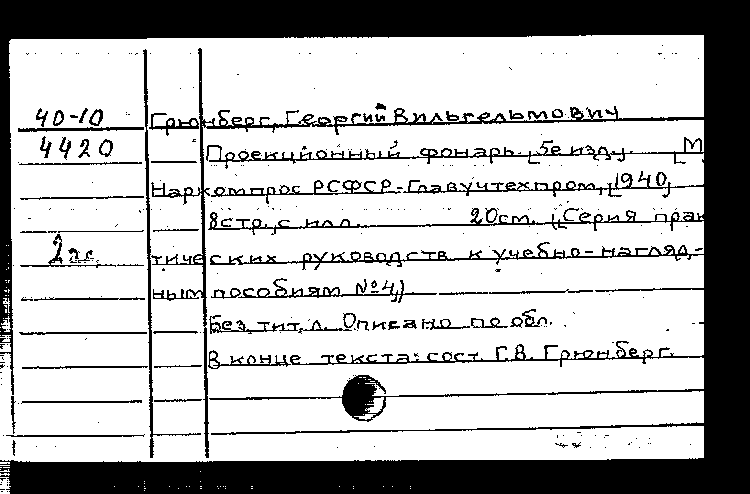 40-10 Грюнберг, Георгий Вильгельмович
4420 Проекционный фонарь [5е изд.]. [М
Наркомпрос РСФСР-Главучтехпром, [1940]
8стр., с илл. 20см. ([Серия прак
2 тических руководств к учебно-нагляд,-
ным пособиям №4])
Без тит. л. Описано по обл.
В конце текста: сост. Г.В. Грюнберг.